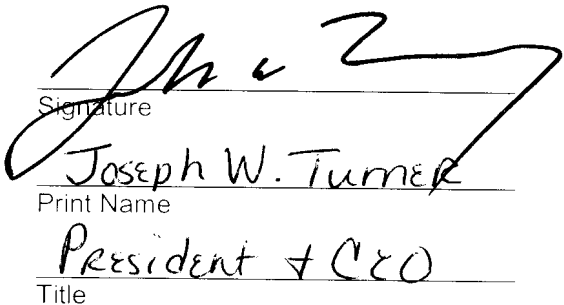 Signature
Joseph W. Turner
Print Name
President + CEO
Title